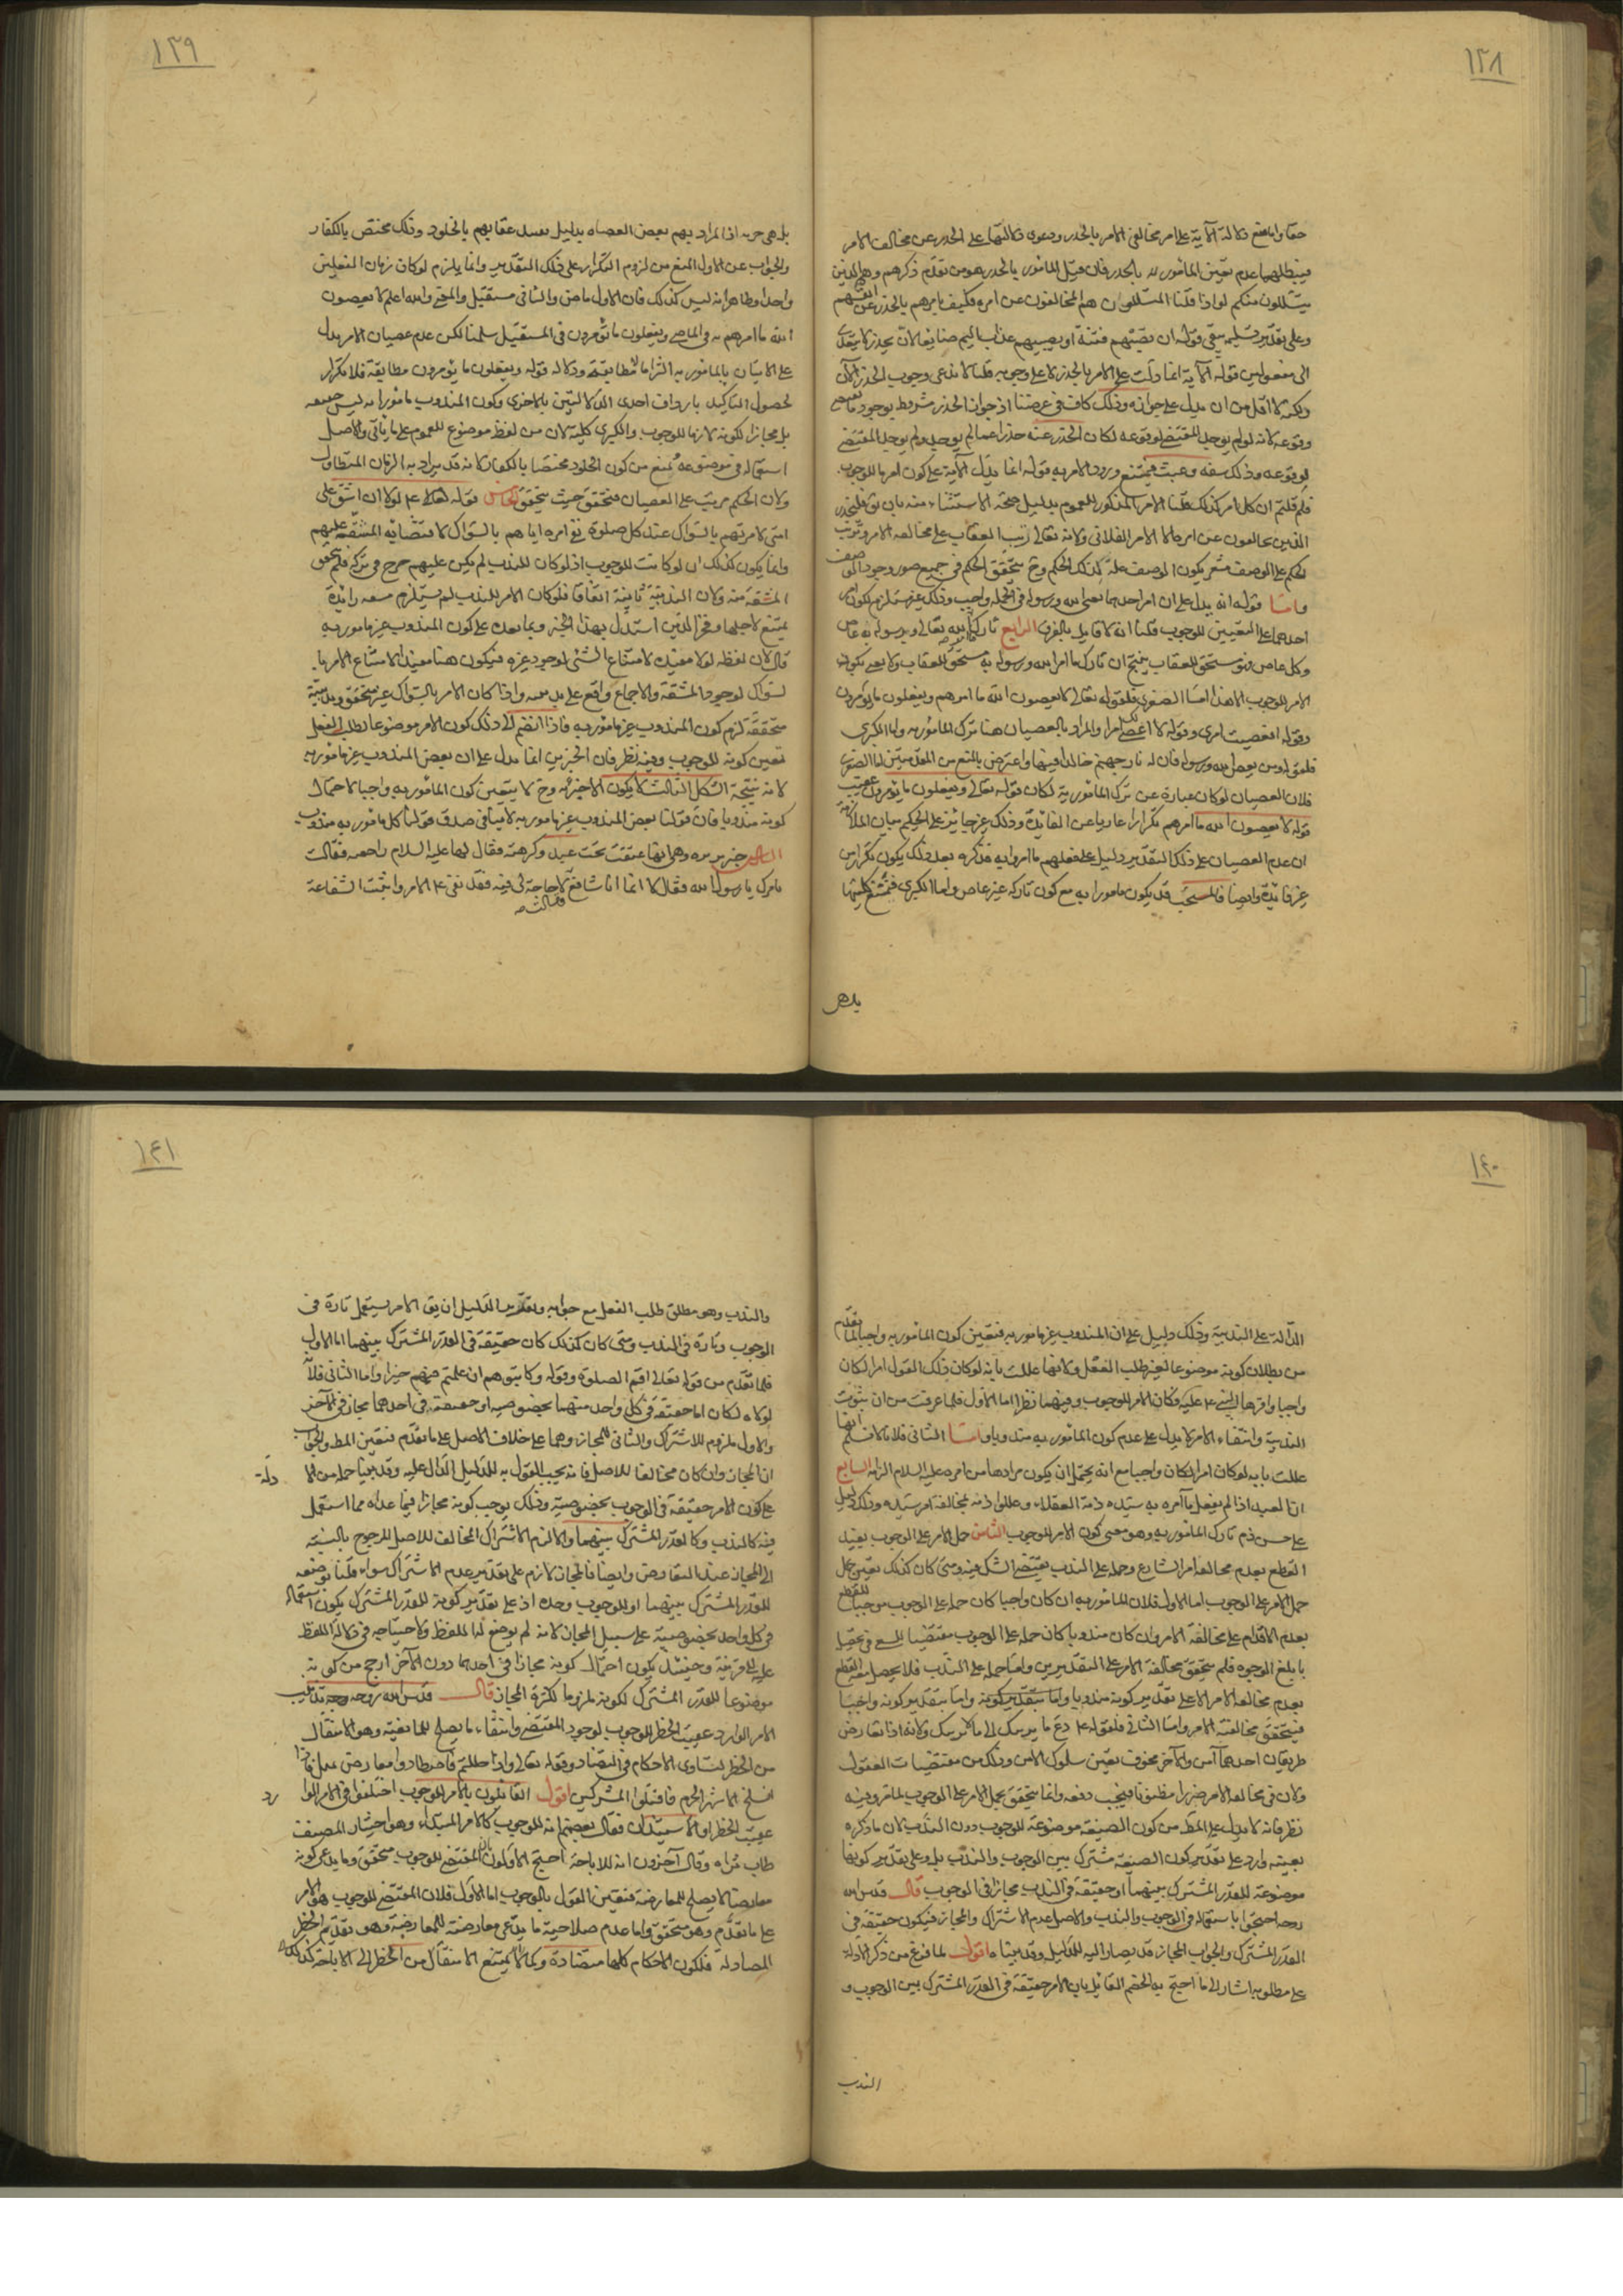 ١٣٨
حقا وامامع دلالة الآية على امر مخالفي الامر بالحذر ودعوى دلالتها على الحذر عن مخالف الامر
فيبطلهما عدم تعين المأمور له بالحذر فان قيل المأمور بالحذر هو من تقدم ذكرهم وهم الذين
يتسللون منكم لواذا قلنا المتسللون هم المخالفون عن امره فكيف يامرهم بالحذر عن انفسهم
وعلى تقدير تسليمه يبقى قوله ان تصيبهم فتنة او يصيبهم عذاب اليم ضايعا لان يحذر لا يتعدى
الى مفعولين قوله الآية انما دلت على الامر بالحذر لا على وجوبه قلنا لا ندعى وجوب الحذر الآن
ولكنه لا اقل من ان يدل على جوازه وذلك كاف في غرضنا اذ جواز الحذر مشروط بوجود ما يقتضى
وقوعه لانه لو لم يوجد المقتضى لوقوعه لكان الحذر عنه حذرا عما لم يوجد ولم يوجد المقتضى
لوقوعه وذلك سفه وعبث فيمتنع ورود الامر به قوله انما يدل الآية على كون امره للوجوب
فلم قلتم ان كل امر كذلك قلنا الامر المذكور للعموم بدليل صحة الاستثناء منه بان يق فليحذر
الذين يخالفون عن امره الا الامر الفلانى ولانه تعالى رتب العقاب على مخالفه الامر وترتب
الحكم على الوصف مشعر بكون الوصف علة لذلك الحكم وح يتحقق الحكم في جميع صور وجود الوصف
واما قوله انه يدل على ان امر احدهما يعنى الله ورسوله فى الجملة واجب وذلك غير مستلزم لكون امر
احدهما على التعيين للوجوب قلنا انه لا قايل بالفرق الرابع تارك ما امر الله تعالى ورسوله به عاص
وكل عاص فهو مستحق للعقاب ينتج ان تارك ما امر الله ورسوله به مستحق للعقاب ولا نعنى بكون
الامر للوجوب الا هذا اما الصغرى فلقوله تعالى لا يعصون الله ما امرهم ويفعلون ما يؤمرون
وقوله افعصيت امرى وقوله لا اعصى لك امرا والمراد بالعصيان هنا ترك المأمور به واما الكبرى
فلقوله ومن يعص الله ورسوله فان له نار جهنم خالدا فيها واعترض بالمنع من المقدمتين اما الصغرى
فلان العصيان لو كان عبارة عن ترك المأمور به لكان قوله تعالى ويفعلون ما يؤمرون عقيب
قوله لا يعصون الله ما امرهم تكرارا عاريا عن الفائدة وذلك غير جائز على الحكيم بيان الملازمة
ان عدم العصيان على ذلك التقدير دليل على فعلهم ما امروا به فذكره بعد ذلك يكون تكرارا من
غير فائدة وايضا فالمستحب قد يكون مامورا به مع كون تاركه غير عاص واما الكبرى فنمنع كليتها
بل هى
١٣٩
بل هى جزيه اذا المراد بهم بعض العصاه بدليل تعليل عقابهم بالخلود وذلك مختص بالكفار
والجواب عن الاول المنع من لزوم التكرار على ذلك التقدير وانما يلزم لو كان زمان الفعلين
واحدا وظاهر انه ليس كذلك فان الاول ماض والثانى مستقبل والمعنى والله اعلم لا يعصون
الله ما امرهم به فى الماضى ويفعلون ما يؤمرون فى المستقبل سلمنا لكن عدم عصيان الامر يدل
على الاتيان بالمأمور به التزاما لا مطابقة ودلالة قوله ويفعلون ما يؤمرون مطابقة فلا تكرار
لحصول التاكيد بارداف احدى الدلالتين بالاخرى وكون المندوب مأمورا به ليس حقيقة
بل مجازا لكونه لازما للوجوب والكبرى كلية لان من لفظ موضوع للعموم على ما ياتى والاصل
استعماله فى موضوعه ونمنع من كون الخلود مختصا بالكفار لانه قد يراد به الزمان المتطاول
ولان الحكم مرتب على العصيان فيتحقق حيث يتحقق الخامس قوله ع لولا ان اشق على
امتى لامرتهم بالسواك عند كل صلوة نفى امره اياهم بالسواك لاقتضائه المشقة عليهم
وانما يكون كذلك ان لو كانت للوجوب اذ لو كان للندب لم يكن عليهم حرج فى تركه فلم تتحقق
المشقة منه ولان الندبية ثابتة اتفاقا فلو كان الامر للندب لم يستلزم مشقه زائدة
يمتنع لاجلها وفخر الدين استدل بهذا الخبر وبما بعده على كون المندوب غير مامور به
قال لان لفظه لولا مفيدة لامتناع الشئ لوجود غيره فيكون هنا مفيدة لامتناع الامر بال
لسواك لوجود المشقة والاجماع واقع على ندبيته واذا كان الامر بالسواك غير متحقق وندبية
متحققة لزم كون المندوب غير مامور به فاذا انضم الى ذلك كون الامر موضوعا لطلب الفعل
تعين كونه للوجوب وفيه نظر فان الخبرين انما يدل على ان بعض المندوب غير مأمور به
لانه نتيجة الشكل الثالث لا يكون الا جزئية وح لا يتعين كون المأمور به واجبا لاحتمال
كونه مندوبا فان قولنا بعض المندوب غير مامور به لا ينافى صدق قولنا كل مأمور به مندوب
السادس خبر بريره وهى انها عتقت تحت عبد وكرهته فقال لها عليه السلام راجعيه فقالت
تامرنى يا رسول الله فقال لا انما انا شافع فقالت لا حاجة لى فيه فقد نفى ع الامر واثبت الشفاعة
١٤٠
الدالة على الندبية وذلك دليل على ان المندوب غير مامور به فتعين كون المأمور به واجبا لما تقدم
من بطلان كونه موضوعا لغير طلب الفعل ولانها عللت بانه لو كان ذلك القول امرا لكان
واجبا واقرها النبى ع عليه فكان الامر للوجوب وفيهما نظر اما الاول فلما عرفت من ان ثبوت
الندبية وانتفاء الامر لا يدل على عدم كون المأمور به مندوبا واما الثانى فلانا لا نسلم انها
عللت بانه لو كان امرا لكان واجبا مع انه يحتمل ان يكون مرادها من امره عليه السلام الزامه السابع
ان العبد اذا لم يفعل ما آمره به سيده ذمه العقلاء وعللوا ذمه بمخالفة امر سيده وذلك دليل
على حسن ذم تارك المأمور به وهو معنى كون الامر للوجوب الثامن حمل الامر على الوجوب يفيد
القطع بعدم مخالفه امر الشارع وحمله على الندب يقتضى الشك فيه ومتى كان كذلك تعين حمل
حمل الامر على الوجوب اما الاول فلان المأمور به ان كان واجبا كان حمله على الوجوب موجبا للقطع
بعدم الاقدام على مخالفة الامر وان كان مندوبا كان حمله على الوجوب مقتضيا للسعى فى تحصيله
بابلغ الوجوه فلم يتحقق مخالفة الامر على التقديرين واما حمله على الندب فلا يحصل معه القطع
بعدم مخالفه الامر الا على تقدير كونه مندوبا واما بتقدير كونه واما بتقدير كونه واجبا
فيتحقق مخالفته الامر واما الثانى فلقوله ع دع ما يريبك الى ما لا يريبك ولانه اذا تعارض
طريقان احدهما آمن والآخر مخوف تعين سلوك الامن وذلك من مقتضيات العقول
ولان فى مخالفه الامر ضررا مظنونا فيجب دفعه وانما يتحقق بحمل الامر على الوجوب لما مر وفيه
نظر فانه لا يدل على المط من كون الصيغة موضوعة للوجوب دون الندب لان ما ذكره
بعينه وارد على تقدير كون الصيغة مشترك بين الوجوب والندب بل وعلى تقدير كونها
موضوعة للقدر المشترك بينهما او حقيقة فى الندب مجازا فى الوجوب قال قدس الله
روحه احتجوا باستعماله فى الوجوب والندب والاصل عدم الاشتراك والمجاز فيكون حقيقة فى
القدر المشترك والجواب المجاز قد يصار اليه للدليل وقد بيناه اقول لما فرغ من ذكر الادلة
على مطلوبه اشار الى ما احتج به الخصم القائل بان الامر حقيقة فى القدر المشترك بين الوجوب و
الندب
١٤١
والندب وهو مطلق طلب الفعل مع جوابه وتقرير الدليل ان يق الامر يستعمل تارة فى
الوجوب وتارة فى الندب ومتى كان كذلك كان حقيقة فى القدر المشترك بينهما اما الاول
فلما تقدم من قوله تعالى اقم الصلوة وقوله وكاتبوهم ان علمتم فيهم خيرا واما الثانى فلانه
لولاه لكان اما حقيقة فى كل واحد منهما بخصوصيه او حقيقة فى احدهما مجاز فى الآخر
والاول ملزوم للاشتراك والثانى للمجاز وهما على خلاف الاصل على ما تقدم فتعين المط والجواب
ان المجاز وان كان مخالفا للاصل فانه يجب القول به للدليل الدال عليه وقد بينا جمله من الا دلة
على كون الامر حقيقة فى الوجوب بخصوصيته وذلك يوجب كونه مجازا فيما عداه مما استعمل
فيه كالندب وكالقدر المشترك بينهما والا لزم الاشتراك المخالف للاصل المرجوح بالنسبة
الى المجاز عند التعارض وايضا فالمجاز لازم على تقدير عدم الاشتراك سواء قلنا بوضعه
للقدر المشترك بينهما او للوجوب وحده اذ على تقدير كونه للقدر المشترك يكون استعماله
فى كل واحد بخصوصيته على سبيل المجاز لانه لم يوضع لها اللفظ ولاحتياجه فى دلالة اللفظ
عليه الى قرينة وحينئذ يكون احتمال كونه مجازا فى احدهما دون الآخر ارجح من كونه
موضوعا للقدر المشترك لكونه ملزوما لكثرة المجاز قال قدس الله روحه
الامر الوارد عقيب الحظر للوجوب لوجود المقتضى وانتفاء ما يصلح للمانعية وهو الانتقال
من الحظر لتساوى الاحكام فى التضاد وقوله تعالى واذا حللتم فاصطادوا معارض بقوله فاذا
انسلخ الاشهر الحرم فاقتلوا المشركين اقول القائلون بالامر للوجوب اختلفوا فى الامر الوا رد
عقيب الحظر او الاستيذان فقال بعضهم انه للوجوب كالامر المبتداء وهو اختيار المصنف
طاب ثراه وقال آخرون انه للاباحة احتج الاولون بان المقتضى للوجوب متحقق وما يدعى كونه
معارضا لا يصلح للمعارضة فتعين القول بالوجوب اما الاول فلان المقتضى للوجوب هو الامر
على ما تقدم وهو متحقق واما عدم صلاحية ما يدعى معارضته للمعارضة وهو تقديم الحظر
المصادلة فلكون الاحكام كلها متضادة وكما لا يمتنع الانتقال من الحظر الى الاباحة كذلك